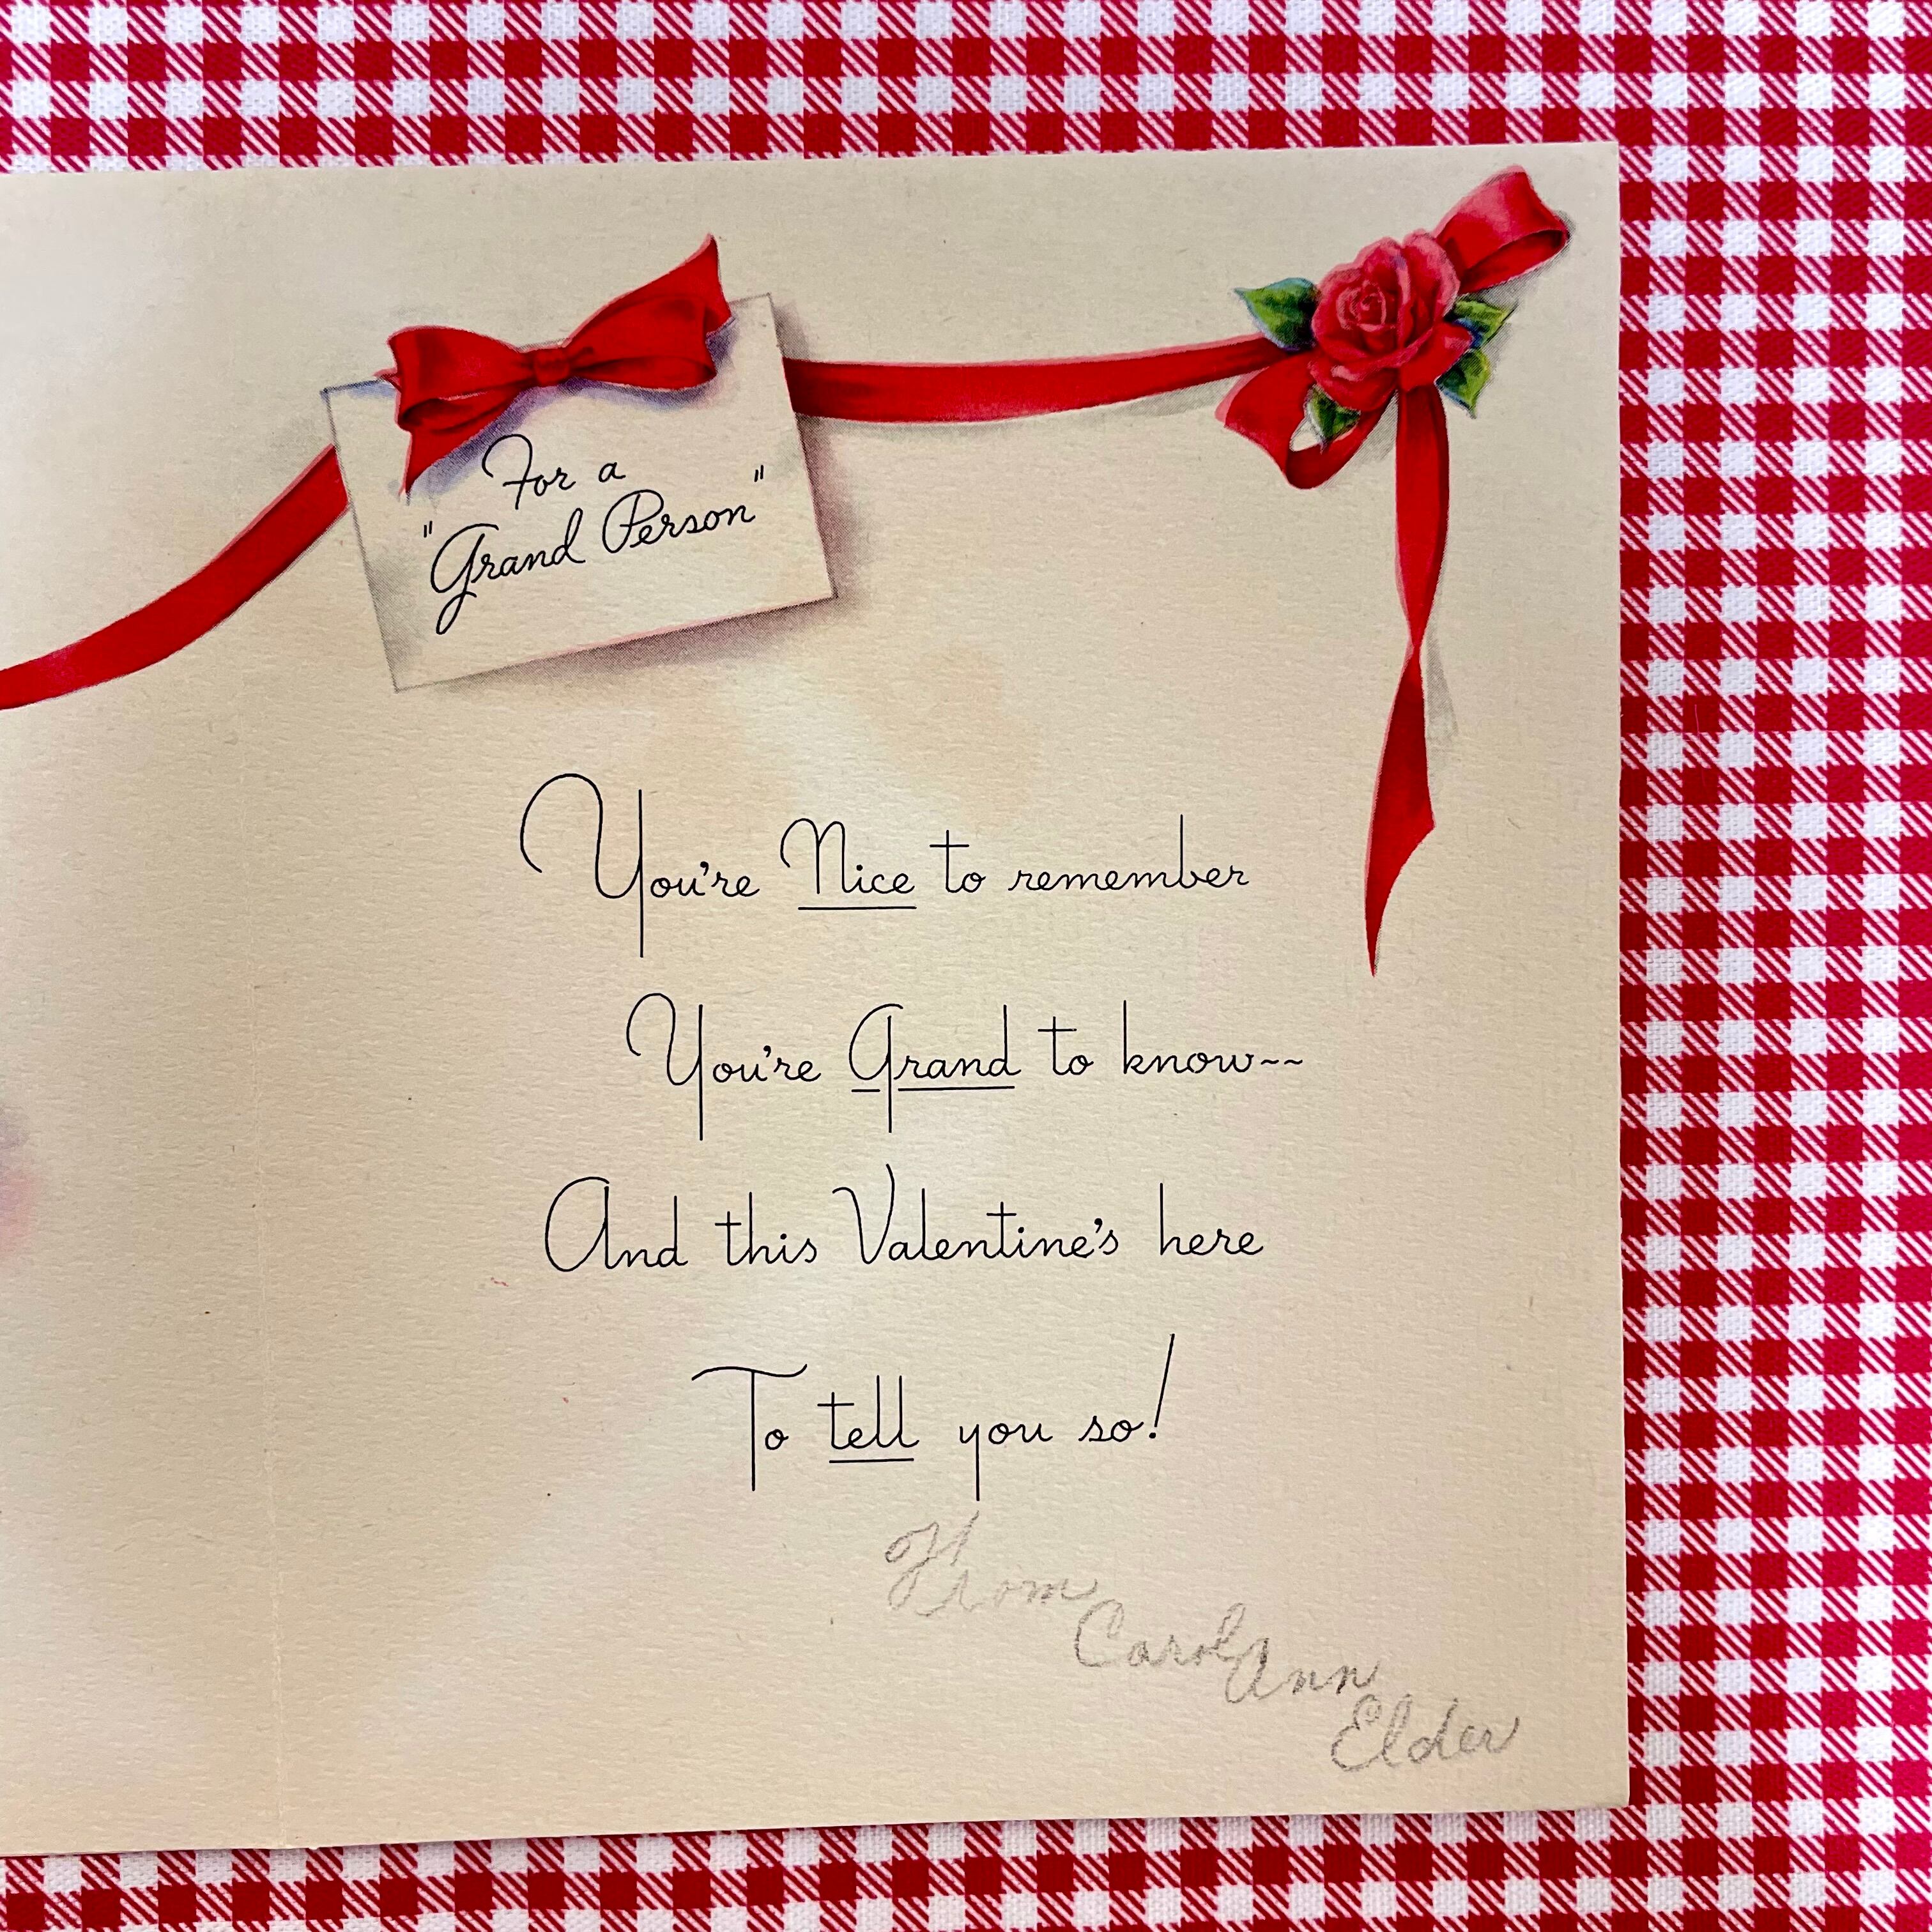 For a
"Grand Person"
You're Nice to remember
You're Grand to know~~
And this Valentine's here
To tell you so!
From
Carol Ann
Elder